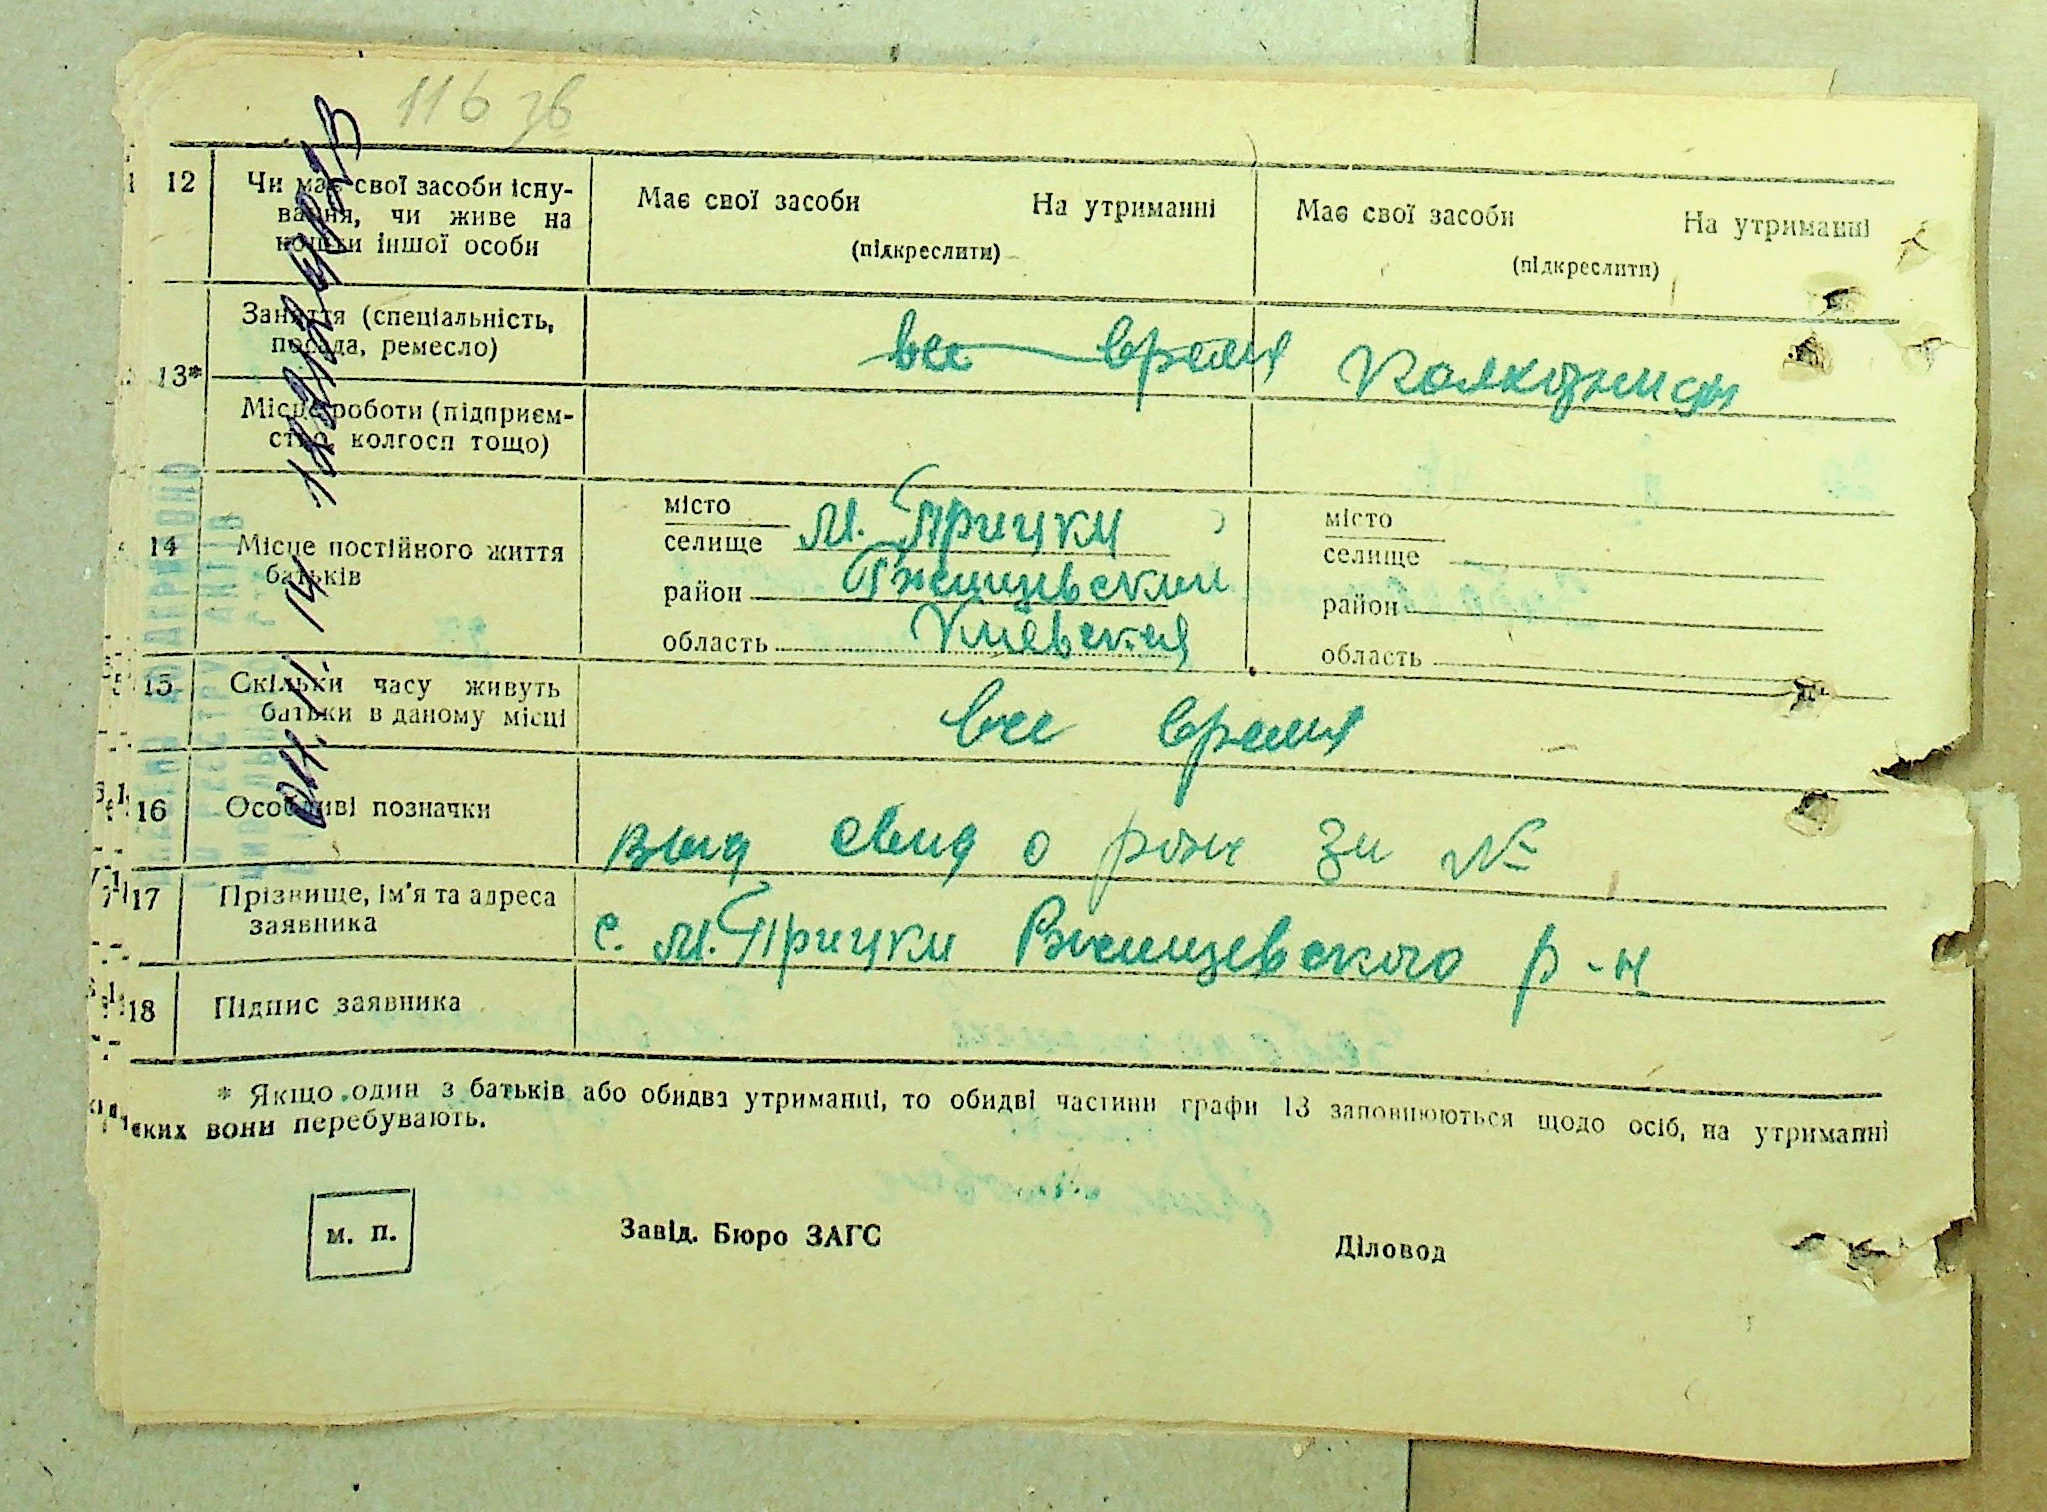 116 зв
12 Чи має свої засоби існу-
вання, чи живе на
кошти іншої особи
Має свої засоби На утриманні
(підкреслити)
Має свої засоби На утриманні
(підкреслити)
13*
Заняття (спеціальність,
посада, ремесло)
все время колхозницы
Місце роботи (підприєм-
ство, колгосп тощо)
14 Місце постійного життя
батьків
місто
селище М. Прицки
район Ржищевский
область Киевская
місто
селище
район
область
15 Скільки часу живуть
батьки в даному місці
все время
16 Особливі позначки
выд свид о рож за №
17 Прізвище, ім'я та адреса
заявника
с. М. Прицки Ржищевского р-н
18 Підпис заявника
* Якщо один з батьків або обидва утриманці, то обидві частини графи 13 заповнюються щодо осіб, на утриманні
яких вони перебувають.
м. п.
Завід. Бюро ЗАГС
Діловод
04. 11. 14